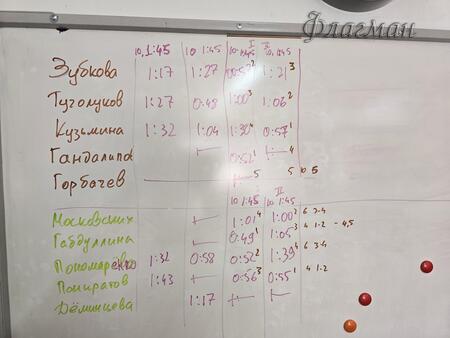 Флагман
I II
10, 1:45 10 1:45 10 1:45 10 1:45
Зубкова 1:17 1:27 0:52² 1:21³
Туголуков 1:27 0:48 1:00³ 1:06²
Кузьмина 1:32 1:04 1:30⁴ 0:57¹
Гандалипов 0:52¹ 4
Горбачев 5 5 0,5
II
10 1:45 10 1:45
Московских 1:01⁴ 1:00² 6 3-4
Габдуллина 0:49¹ 1:05³ 4 1-2 - 4,5
Пономаренко 1:32 0:58 0:52² 1:39⁴ 6 3-4
Понкратов 1:43 0:56³ 0:55¹ 4 1-2
Дёминцева 1:17